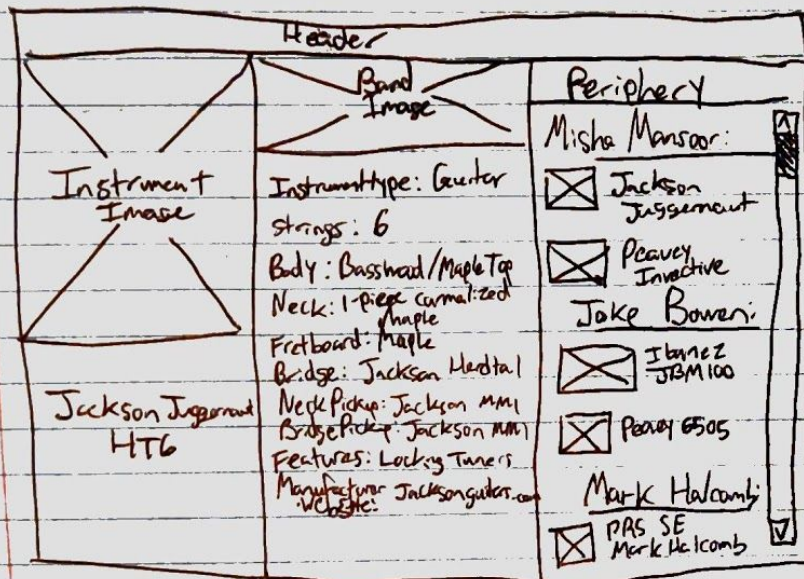 Header
Instrument
Image
Jackson Juggernaut
HT6
Band
Image
Instrumenttype: Guitar
Strings: 6
Body: Basswood/Maple Top
Neck: 1-piece carmalized
Maple
Fretboard: Maple
Bridge: Jackson Hardtail
Neck Pickup: Jackson MM1
Bridge Pickup: Jackson MM1
Features: Locking Tuners
Manufacturer Jacksonguitars.com
Website:
Periphery
Misha Mansoor:
Jackson
Juggernaut
Peavey
Invective
Jake Bowen:
Ibanez
JBM100
Peavey 6505
Mark Halcomb:
PRS SE
Mark Halcomb